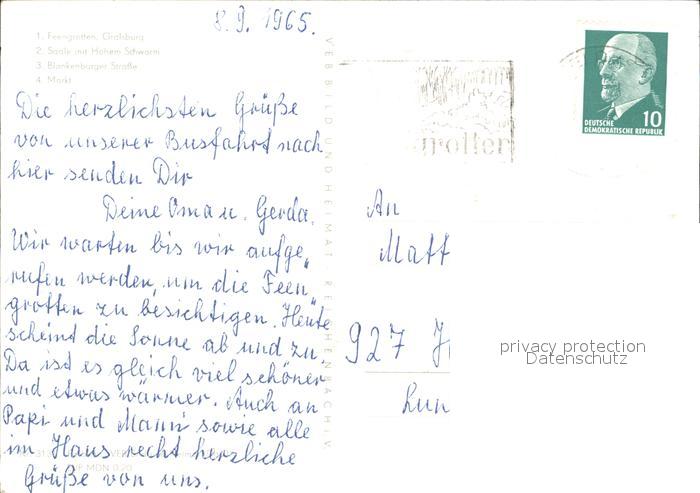 8.9.1965.
1. Feengrotten, Gralsburg
2. Saale mit Hohem Schwarm
3. Blankenburger Straße
4. Markt
Die herzlichsten Grüße
von unserer Busfahrt nach
hier senden Dir
Deine Oma u. Gerda.
Wir warten bis wir aufge„
rufen werden, um die Feen„
grotten zu besichtigen. Heute
scheint die Sonne ab und zu.
Da ist es gleich viel schöner
und etwas wärmer. Auch an
Papi und Mami sowie alle
im Haus recht herzliche
Grüße von uns.
VEB BILD UND HEIMAT · REICHENBACH I. V.
DEUTSCHE
DEMOKRATISCHE REPUBLIK
10
An
Matt
927
privacy protection
Datenschutz